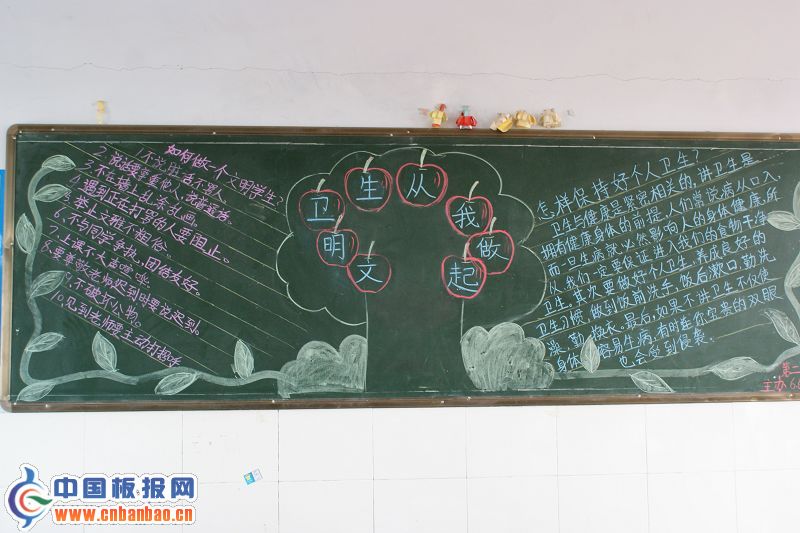 如何做一个文明学生:
1.不说脏话,不骂人。
2.说话要尊重他人,
3.不在墙上乱条乱画。
4.遇到正在打骂的人要阻止。
5.举止文雅不粗俗。
6.不与同学争执,团结友好。
7.上课不大声喧哗。
8.要尊敬老师迟到时要说迟到。
9.不破坏公物。
10.见到老师要主动打招呼
文明卫生从我做起
怎样保持好个人卫生?
卫生与健康是紧密相关的,讲卫生是
拥有健康身体的前提,人们常说病从口入,
而一旦生病就必然影响人的身体健康,所
以,我们一定要保证进入我们的食物干净
卫生,其次要做好个人卫生,养成良好的
卫生习惯,做到饭前洗手,饭后漱口,勤洗
澡、勤换衣。最后,如果不讲卫生不仅使
身体容易生病,有时连你宝贵的双眼
也会受到侵袭.
第二
主办 6.
中国板报网
www.cnbanbao.cn